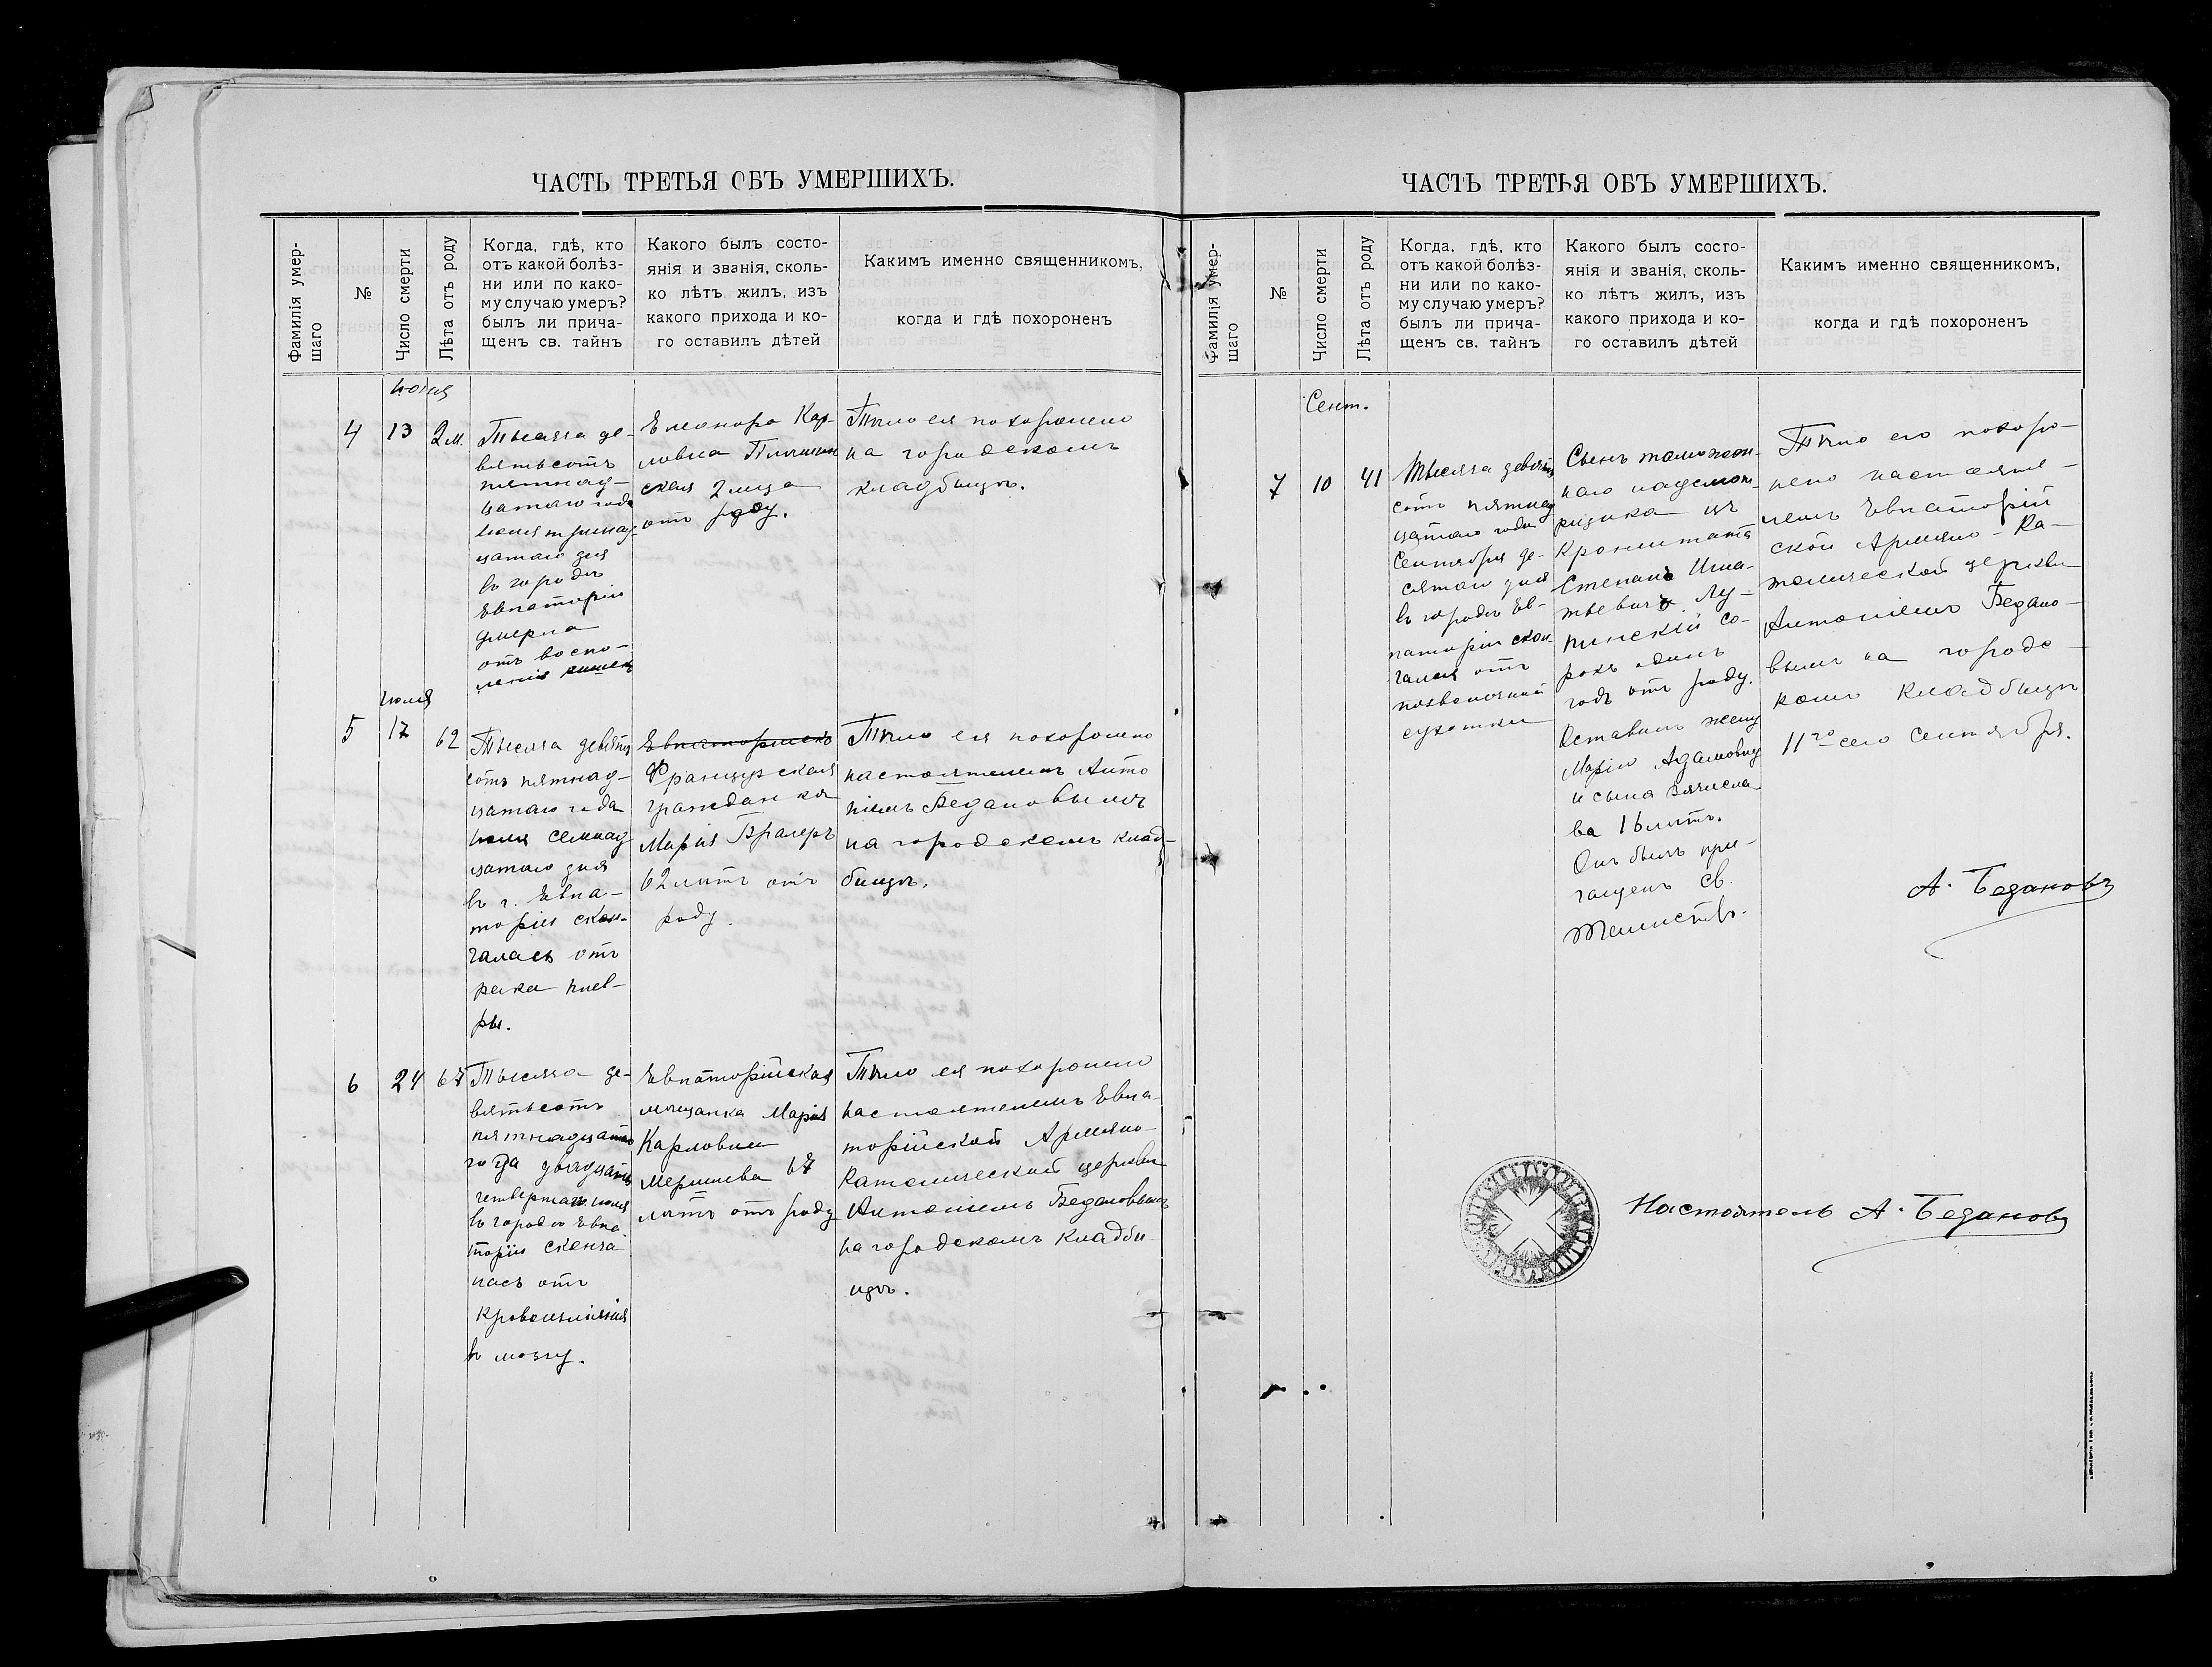 ЧАСТЬ ТРЕТЬЯ ОБЪ УМЕРШИХЪ.
Фамилія умер-
шаго
№
Число смерти
Лѣта отъ роду
Когда, гдѣ, кто
отъ какой болѣз-
ни или по како-
му случаю умеръ?
былъ ли прича-
щенъ св. тайнъ
Какого былъ состо-
янія и званія, сколь-
ко лѣтъ жилъ, изъ
какого прихода и ко-
го оставилъ дѣтей
Какимъ именно священникомъ,
когда и гдѣ похороненъ
Іюня
4
13
2 м.
Тысяча де-
вятьсотъ
пятнад-
цатаго года
Іюня тринад-
цатаго дня
въ городѣ
Евпаторіи
умерла
отъ воспа-
ленія кишекъ
Елеонора Кар-
ловна
ская 2 мца
отъ роду.
Тѣло ея похоронено
на городскомъ
кладбищѣ.
Іюля
5
17
62
Тысяча девять
сотъ пятнад-
цатаго года
Іюля семнад
цатаго дня
въ г. Евпа-
торіи скон-
чалась отъ
рака плев-
ры.
Евпаторійска
Французская
гражданка
Марія
62 лѣтъ отъ
роду.
Тѣло ея похоронено
настоятелемъ Анто
ніемъ Бедановымъ
на городскомъ клад-
бищѣ.
6
24
67
Тысяча де-
вятьсотъ
пятнадцатаго
года двадцать
четвертаго іюля
въ городѣ Евпа
торіи сконча
лась отъ
кровоизліянія
въ мозгу.
Евпаторійская
мѣщанка Марія
Карловна
67
лѣтъ отъ роду
Тѣло ея похоронено
настоятелемъ Евпа-
торійской Армяно-
Католической церкви
Антоніемъ Бедановымъ
на городскомъ кладби
щѣ.
ЧАСТЬ ТРЕТЬЯ ОБЪ УМЕРШИХЪ.
Фамилія умер-
шаго
№
Число смерти
Лѣта отъ роду
Когда, гдѣ, кто
отъ какой болѣз-
ни или по како-
му случаю умеръ?
былъ ли прича-
щенъ св. тайнъ
Какого былъ состо-
янія и званія, сколь-
ко лѣтъ жилъ, изъ
какого прихода и ко-
го оставилъ дѣтей
Какимъ именно священникомъ,
когда и гдѣ похороненъ
Сент.
7
10
41
Тысяча девять
сотъ пятнад
цатаго года
Сентября де-
сятаго дня
въ городѣ Ев-
паторіи скон
чался отъ
позвоночной
сухотки
Сынъ таможен-
наго надсмот-
рщика изъ
Кронштата
Степанъ Игна-
тьевичъ Лу-
пинскій со-
рокъ одинъ
годъ отъ роду.
Оставилъ жену
Марію Адамовну
и сына Вячесла
ва 16 лѣтъ.
Онъ былъ при-
чащенъ св.
Таинствъ.
Тѣло его похоро-
нено настояте-
лемъ Евпаторій
ской Армяно-Ка-
толической церкви
Антоніемъ Бедано-
вымъ на городс-
комъ кладбищѣ
11го сего Сентября.
А. Бедановъ
Настоятель А. Бедановъ